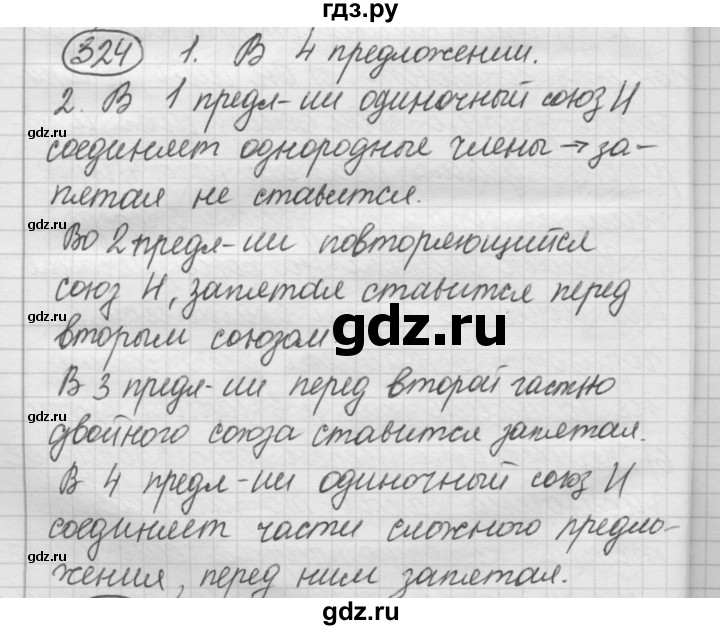 гдз.ру
324 1. В 4 предложении.
2. В 1 предл-ии одиночный союз И
gdz.ru
соединяет однородные члены → за-
пятая не ставится.
gdz.ru
Во 2 предл-ии повторяющийся
союз И, запятая ставится перед
вторым союзом
gdz.ru
gdz.ru
В 3 предл-ии перед второй частью
gdz.ru
двойного союза ставится запятая.
В 4 предл-ии одиночный союз И
соединяет части сложного предло-
gdz.ru
жения, перед ним запятая.
gdz.ru